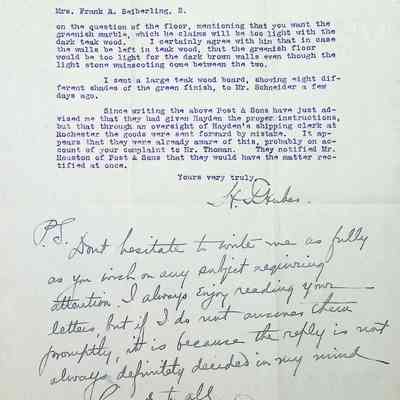 Mrs. Frank A. Seiberling, 2.
on the question of the floor, mentioning that you want the
greenish marble, which he claims will be too light with the
dark teak wood. I certainly agree with him that in case
the walls be left in teak wood, that the greenish floor
would be too light for the dark brown walls even though the
light stone wainscoting come between the two.
I sent a large teak wood board, showing eight dif-
ferent shades of the green finish, to Mr. Schneider a few
days ago.
Since writing the above Post & Sons have just ad-
vised me that they had given Hayden the proper instructions,
but that through an oversight of Hayden's shipping clerk at
Rochester the goods were sent forward by mistake. It ap-
pears that they were already aware of this, probably on ac-
count of your complaint to Mr. Thoman. They notified Mr.
Houston of Post & Sons that they would have the matter rec-
tified at once.
Yours very truly,
H.
P.S. Dont hesitate to write me as fully
as you wish on any subject requiring
attention. I always enjoy reading your
letters, but if I do not answer them
promptly, it is because the reply is not
always definitely decided in my mind
to all